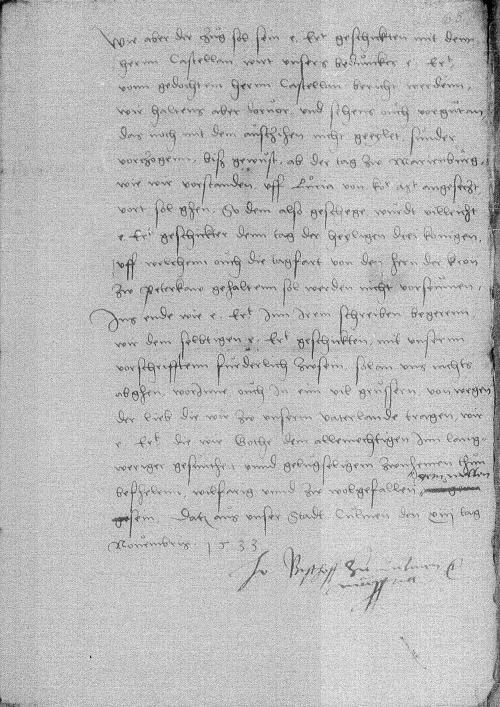 Wie aber die zůg sol sein e. Ert geschickten mit dem
herrn Castellan, wirt unsers bedunckes e. Ert
vom gedochtem herrn Castellan bericht werdenn,
wir haltens aber dorvor, und sehens ouch vor gut an
das noch mit dem ausczihen nicht geeylet, sunder
vorzogenn, biß gewust, ab der tag zw Marienburg,
wie wir vorstanden, uff Lucia von ko. Mt angesaczt
vort sol ghen. So dem also geschege wurdt villeicht
e. Ert geschickter denn tag der heyligen drei konigen,
uff welchem ouch die tagfart von den hern der Cron
zw Peterkaw gehaltenn sol werden nicht vorseumen,
Ins ende wie e. Ert Inn irem schreiben begerenn,
wir dem selbtigen e. Ert geschickten, mit unserm
vorschrifften furderlich zw sein, sol an uns nichts
abghen, worinne ouch In ein vil grussern, von wegen
der lieb die wir zw unserm vaterlande tragen, wir
e. Ert die wir Gothe dem allemechtigen Inn lang-
weriger gesuntheit unnd geluckseligem zunhemen thun
befhelenn, wilfarig unnd zw wolgefallen
sein. Datum aus unser Stadt Culmen den xiij tag
Novembris 1533
Jo Bischoff zu Culmen